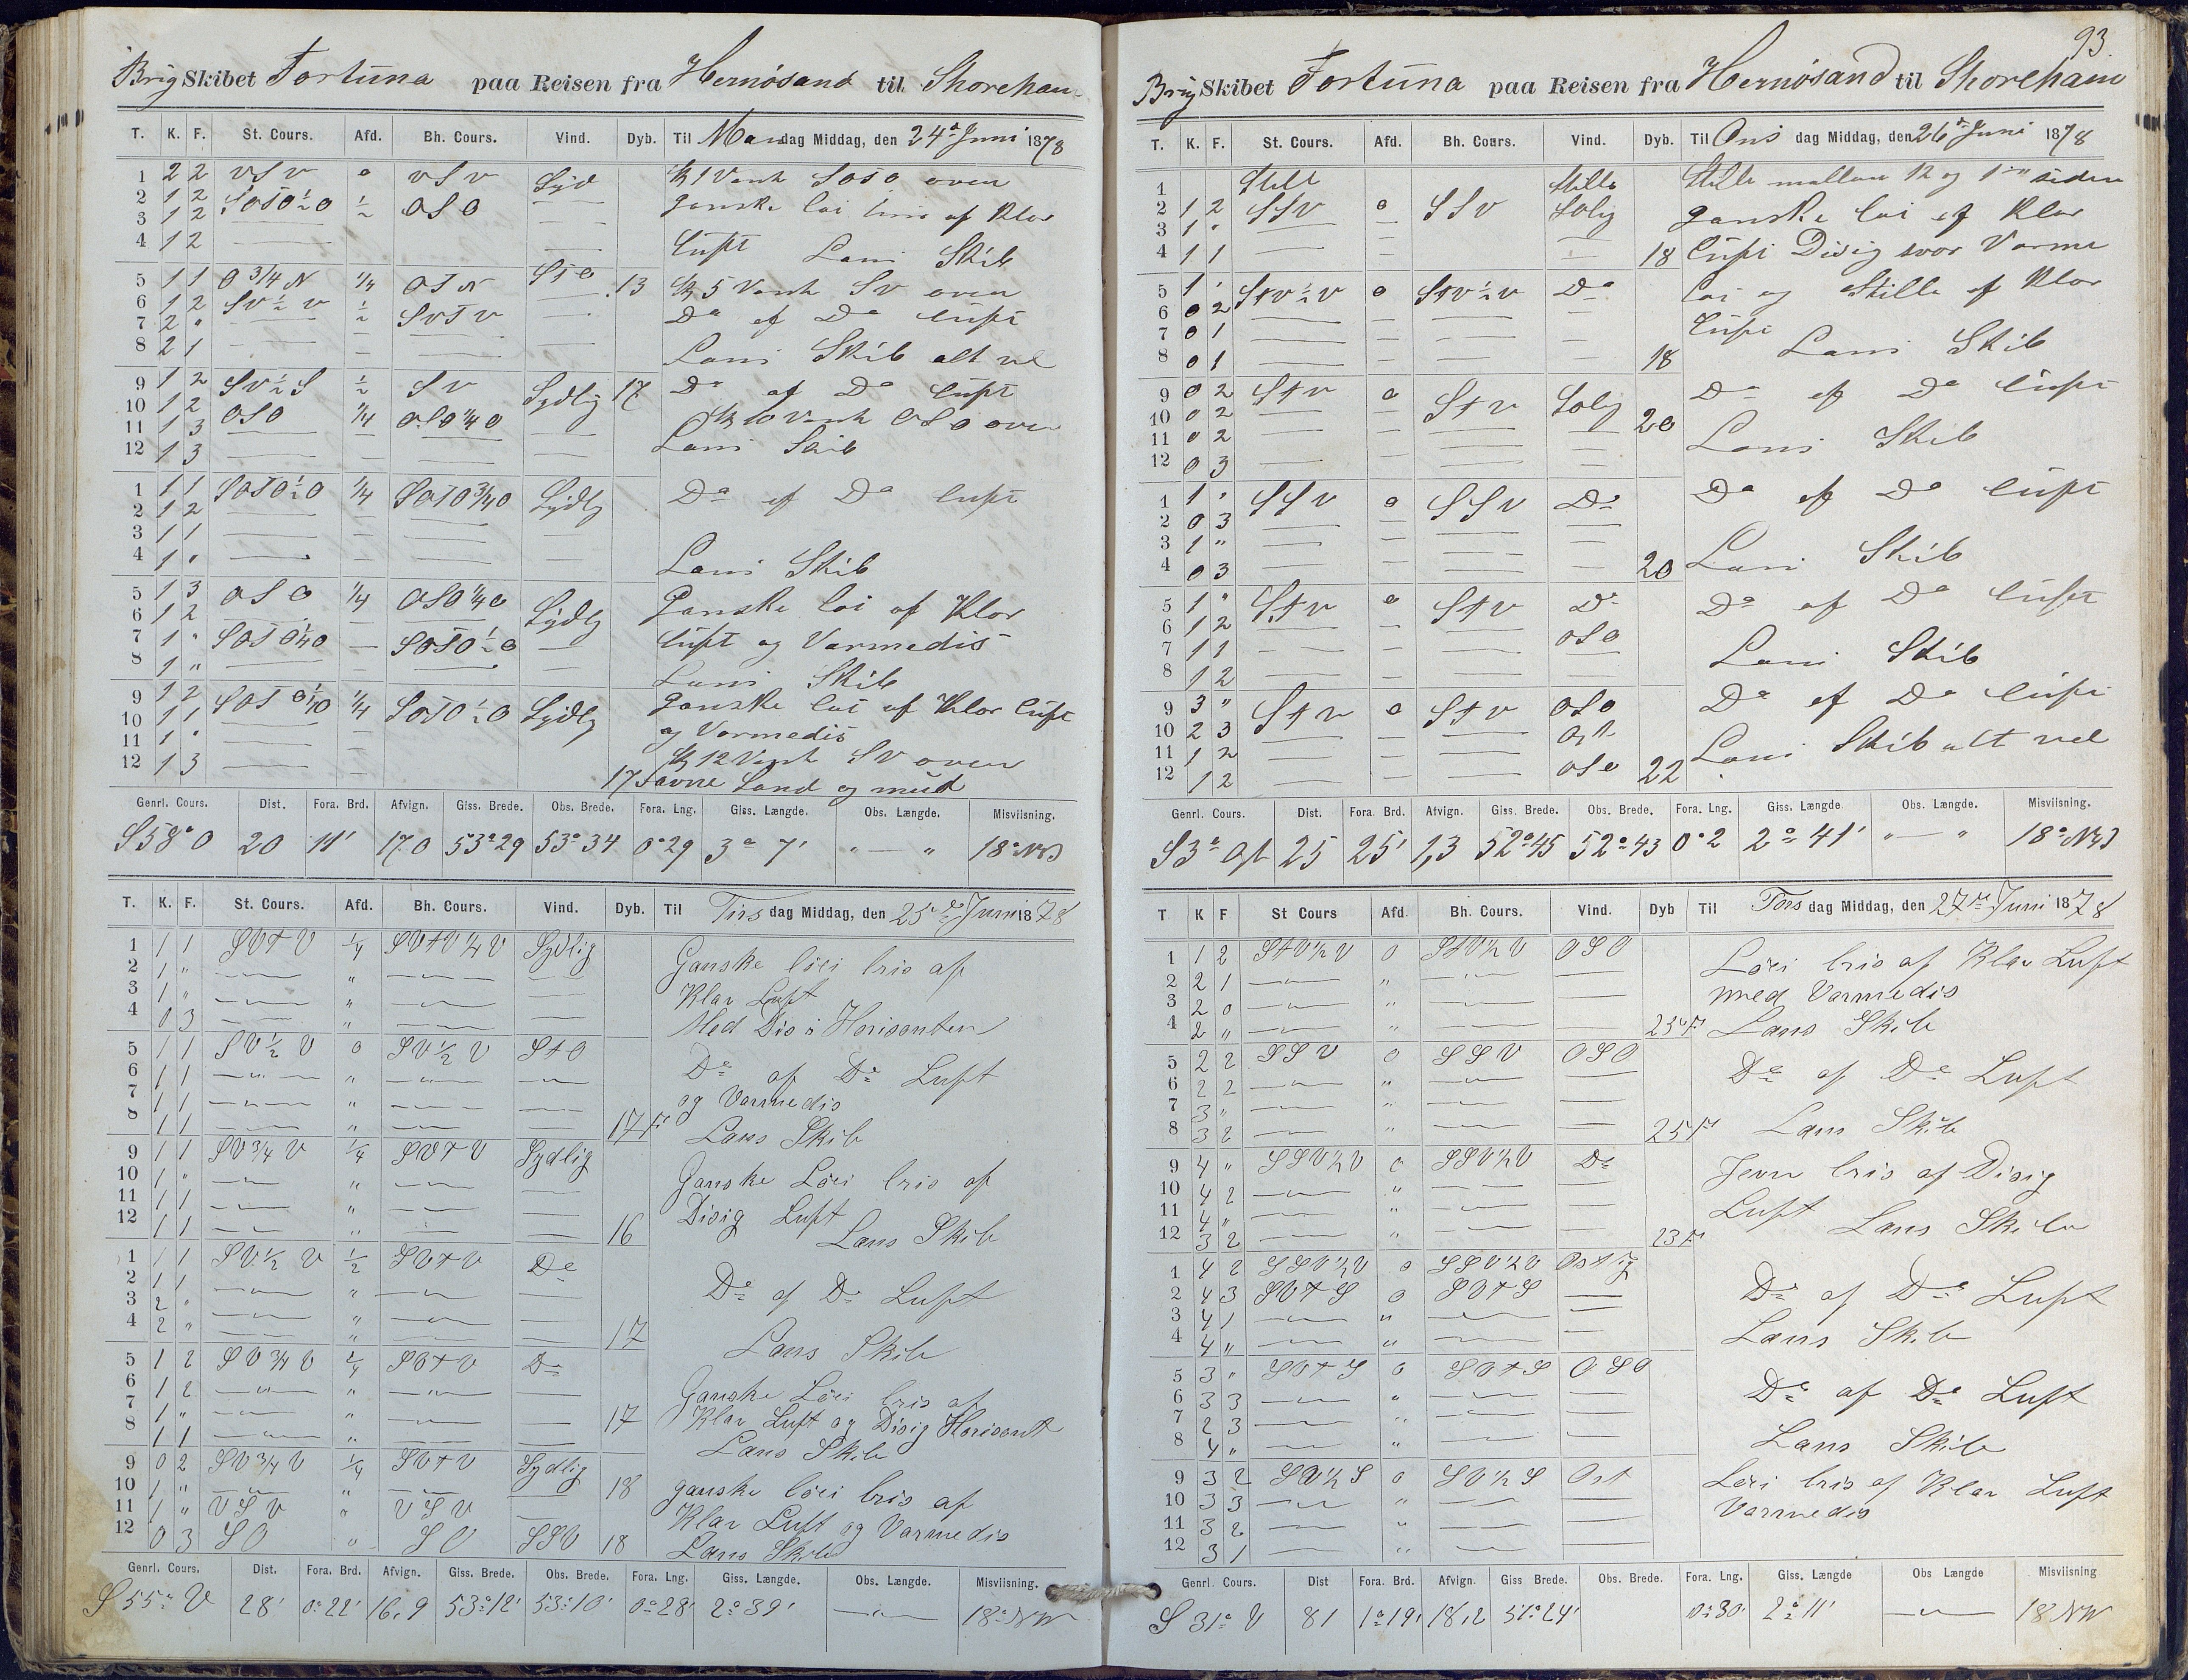 Brig Skibet Fortuna paa Reisen fra Hernösand til Shoreham
T. K. F. St. Cours. Afd. Bh. Cours. Vind. Dyb. Til Mandag Middag, den 24de Juni 1878
1 2 2 VSV 0 VSV Syd Kl 1 Vendt SOSO over
2 1 2 SOTO½O ½ OSO ganske løi bris af Klar
3 1 2
4 1 2 Luft Lens Skib
5 1 1 O¾N ¼ OTN STO 13 Kl 5 Vendt SV over
6 1 2 SV½V ½ SVTV Do af Do Luft
7 2 "
8 2 1 Lens Skib alt vel
9 1 2 SV½S ½ SV Sydlig 17 Do af Do Luft
10 1 2 OSO ¼ OSO¼O Kl 10 Vendt OSO over
11 1 3 Lens Skib
12 1 3
1 1 1 SOTO½O ¼ SOTO¾O Sydlg Do af Do Luft
2 1 2
3 1 1
4 1 " Lens Skib
5 1 3 OSO ¼ OSO¼O Sydlg Ganske løi af Klar
6 1 2
7 1 " SOTO¼O SOTO½O Luft og Varmedis
8 1 " Lens Skib
9 1 2 SOTO¼O ¼ SOTO½O Sydlg Ganske løi af Klar Luft
10 1 1 og Varmedis
11 1 "
12 1 3 Kl 12 Vendt SV over
17 Favne Sand og mud
Genrl. Cours. Dist. Fora. Brd. Afvign. Giss. Brede. Obs. Brede. Fora. Lng. Giss. Længde. Obs. Længde. Misviisning.
S58°O 20 11' 17.0 53°29 53°34 0°29 3° 7' " — " 18° NW
T. K. F. St. Cours. Afd. Bh. Cours. Vind. Dyb. Til Tirsdag Middag, den 25de Juni 1878
1 1 1 SVTV ¼ SVTV¼V Sydlig Ganske löei bris af
2 1 " "
3 1 " " Klar Luft
4 0 3 " Med Dis i Horisonten
5 1 1 SV½V 0 SV½V STO Do af Do Luft
6 1 1 "
7 1 1 " og Varmedis
8 1 1 " 17 Lens Skib
9 1 1 SV¾V ¼ SVTV Sydlig Ganske Löei bris af
10 1 " "
11 1 1 " Disig Luft
12 1 1 " 16 Lens Skib
1 1 1 SV½V ½ SVTV Do Do af Do Luft
2 1 1 "
3 2 " "
4 2 " " 17 Lens Skib
5 1 2 SV¾V ¼ SVTV Do Ganske Löei bris af
6 1 2 "
7 1 " " 17 Klar Luft og Disig Horisont
8 1 1 " Lens Skib
9 0 2 SV¾V ¼ SVTV Sydlig
10 1 " " 18 ganske löei bris af
11 1 " VSV " VSV Klar Luft og Varmedis
12 0 3 SO " SO SSO 18 Lens Skib
Genrl. Cours. Dist. Fora. Brd. Afvign. Giss. Brede. Obs. Brede. Fora. Lng. Giss. Længde. Obs. Længde. Misviisning.
S 55° V 28' 0°22' 16,9 53°12' 53°10' 0°28' 2°39' 18° NW
93.
Brig Skibet Fortuna paa Reisen fra Hernösand til Shoreham
T. K. F. St. Cours. Afd. Bh. Cours. Vind. Dyb. Til Onsdag Middag, den 26de Juni 1878
1 Stille Stille Stille mellem 12 og 1 siden
2 1 2 SSV 0 SSV ganske løi af Klar
3 1 "
4 1 1 18 Luft Disig svær Varme
5 1 " STV½V 0 STV½V Do løi og Stille af Klar
6 0 2 Luft
7 0 1
8 0 1 18 Lens Skib
9 0 2 STV 0 STV Do af Do Luft
10 0 2 20
11 0 2 Lens Skib
12 0 3
1 1 " SSV 0 SSV Do Do af Do Luft
2 0 3
3 1 "
4 0 3 20 Lens Skib
5 1 " STV 0 STV Do Do af Do Luft
6 1 2 OSO
7 1 1
8 1 2 Lens Skib
9 3 " STV 0 STV OSO Do af Do Luft
10 2 3 Ost
11 1 2 Lens Skib alt vel
12 1 2 OSO 22
Genrl. Cours. Dist. Fora. Brd. Afvign. Giss. Brede. Obs. Brede. Fora. Lng. Giss. Længde. Obs. Længde. Misviisning.
S3° Ost 25 25' 1,3 52°45 52°43 0°2 2°41' " — " 18° NW
T K F St Cours Afd Bh. Cours. Vind. Dyb Til Torsdag Middag, den 27de Juni 1878
1 1 2 STV½V 0 STV½V OSO Löei bris af Klar Luft
2 2 1 "
3 2 0 " med Varmedis
4 2 " " 25 Lens Skib
5 2 2 SSV 0 SSV OSO Do af Do Luft
6 2 2 "
7 3 " "
8 3 2 " 25 Lens Skib
9 4 " SSV½V 0 SSV½V Do Jevn bris af Disig
10 4 2 "
11 4 " " Luft
12 3 2 " 23 Lens Skib
1 4 2 SSV½V 0 SSV½V Ostlig Do af Do Luft
2 4 3 SVTS 0 SVTS
3 4 1 " Lens Skib
4 4 " "
5 3 " SVTS 0 SVTS OSO Do af Do Luft
6 3 3 "
7 2 3 "
8 4 " " Lens Skib
9 3 2 SV½S 0 SV½S Ost Löei bris af Klar Luft
10 3 3 " Varmedis
11 3 2 "
12 3 1 "
Genrl. Cours. Dist Fora. Brd. Afvign. Giss Brede. Obs. Brede. Fora. Lng. Giss. Længde Obs Længde Misviisning
S 31° V 81 1°19' 18,2 51°24' 0°30' 2°11' 18 NW